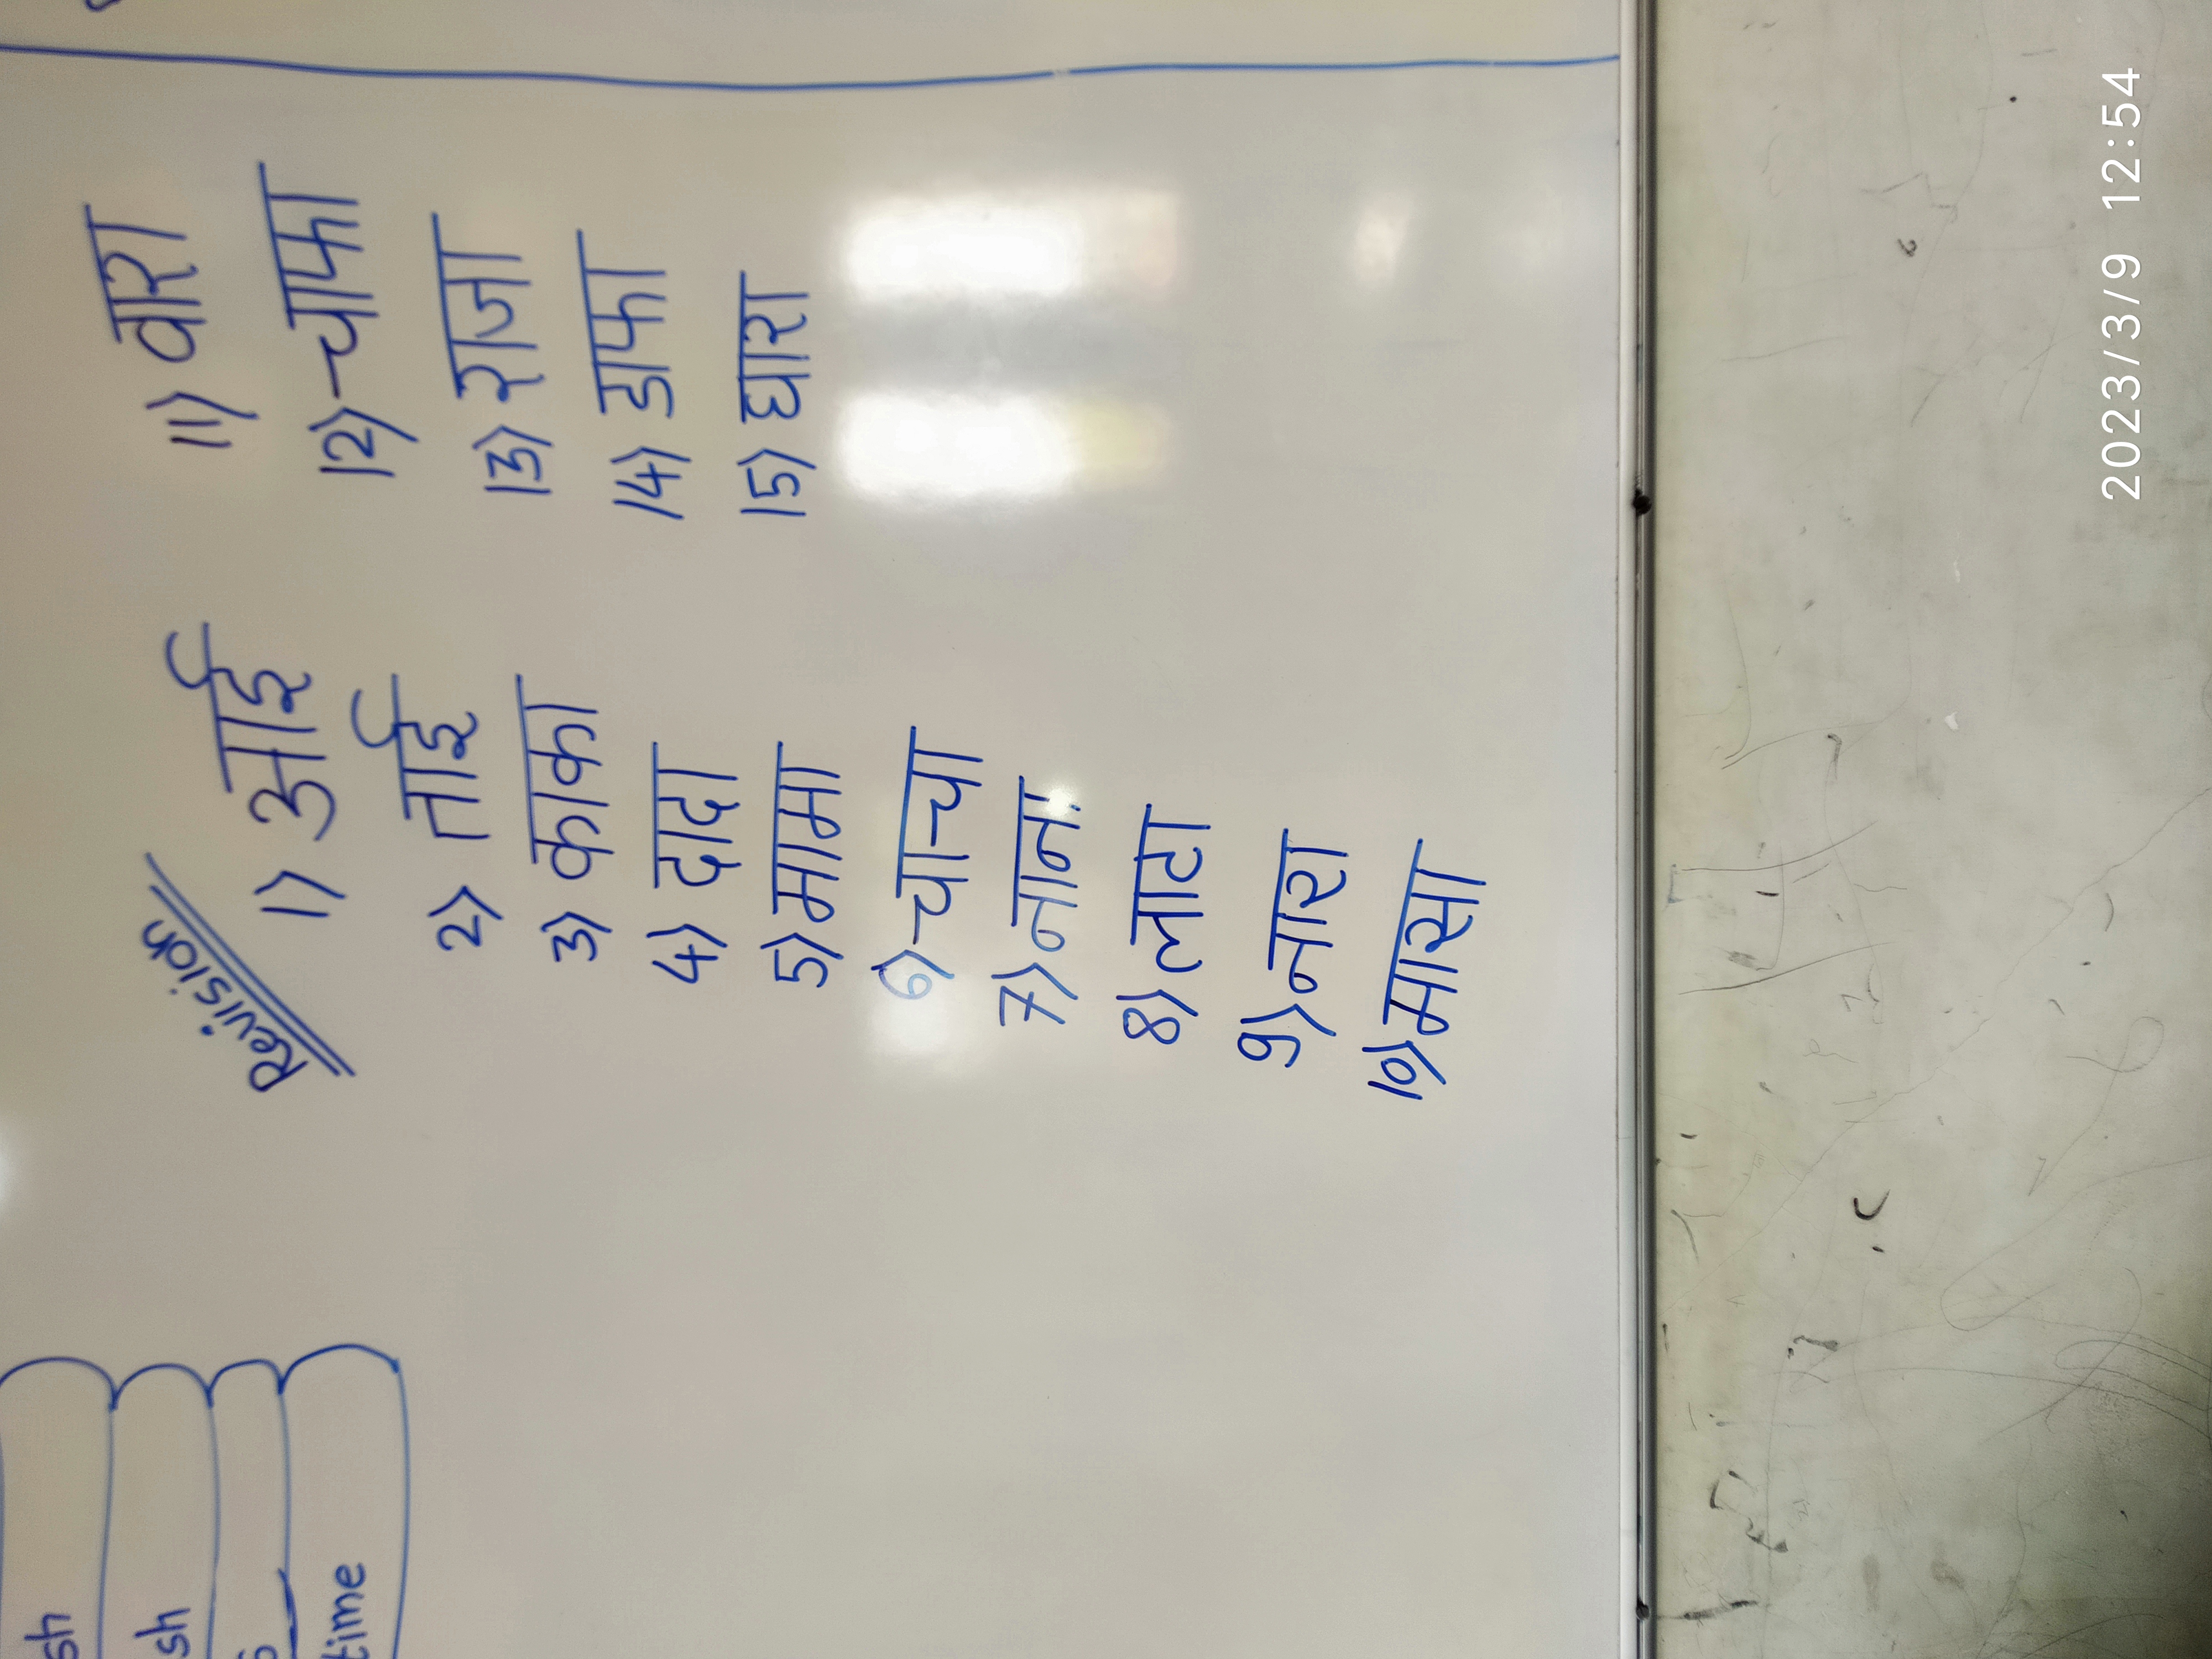 Revision
1) आई
2) ताई
3) काका
4) दादा
5) मामा
6) चाचा
7) नाना
8) लाटा
9) नारा
10) मासा
11) वारा
12) चाफा
13) राजा
14) डाफा
15) धारा
sh
sh
time
2023/3/9 12:54